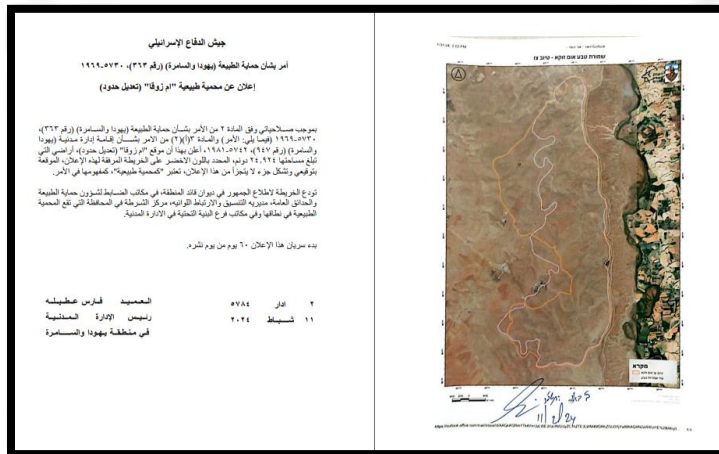 جيش الدفاع الإسرائيلي
أمر بشأن حماية الطبيعة (يهودا والسامرة) (رقم ٣٦٣)، ٥٧٣٠-١٩٦٩
إعلان عن محمية طبيعية "ام زوقا" (تعديل حدود)
بموجب صلاحياتي وفق المادة ٢ من الأمر بشأن حماية الطبيعة (يهودا والسامرة) (رقم ٣٦٣)،
٥٧٣٠-١٩٦٩ (فيما يلي: الأمر) والمادة ٣(أ)(٢) من الامر بشأن إقامة إدارة مدنية (يهودا
والسامرة) (رقم ٩٤٧)، ٥٧٤٢-١٩٨١، أعلن بهذا أن موقع "ام زوقا" (تعديل حدود)، أراضي التي
تبلغ مساحتها ٢٤.٩٢٤ دونم، المحدد باللون الاخضر على الخريطة المرفقة لهذه الإعلان، الموقعة
بتوقيعي وتشكل جزء لا يتجزأ من هذا الإعلان، تعتبر "كمحمية طبيعية"، كمفهومها في الأمر.
تودع الخريطة لاطلاع الجمهور في ديوان قائد المنطقة، في مكاتب الضابط لشؤون حماية الطبيعة
والحدائق العامة، مديريه التنسيق والارتباط اللوائيه، مركز الشرطة في المحافظة التي تقع المحمية
الطبيعية في نطاقها وفي مكاتب فرع البنية التحتية في الادارة المدنية.
بدء سريان هذا الإعلان ٦٠ يوم من يوم نشره.
٢ ادار ٥٧٨٤
١١ شباط ٢٠٢٤
العميد فارس عطيله
رئيس الإدارة المدنية
في منطقة يهودا والسامرة
שמורת טבע אום זוקא - קירוב צו
מקרא
11/2/24